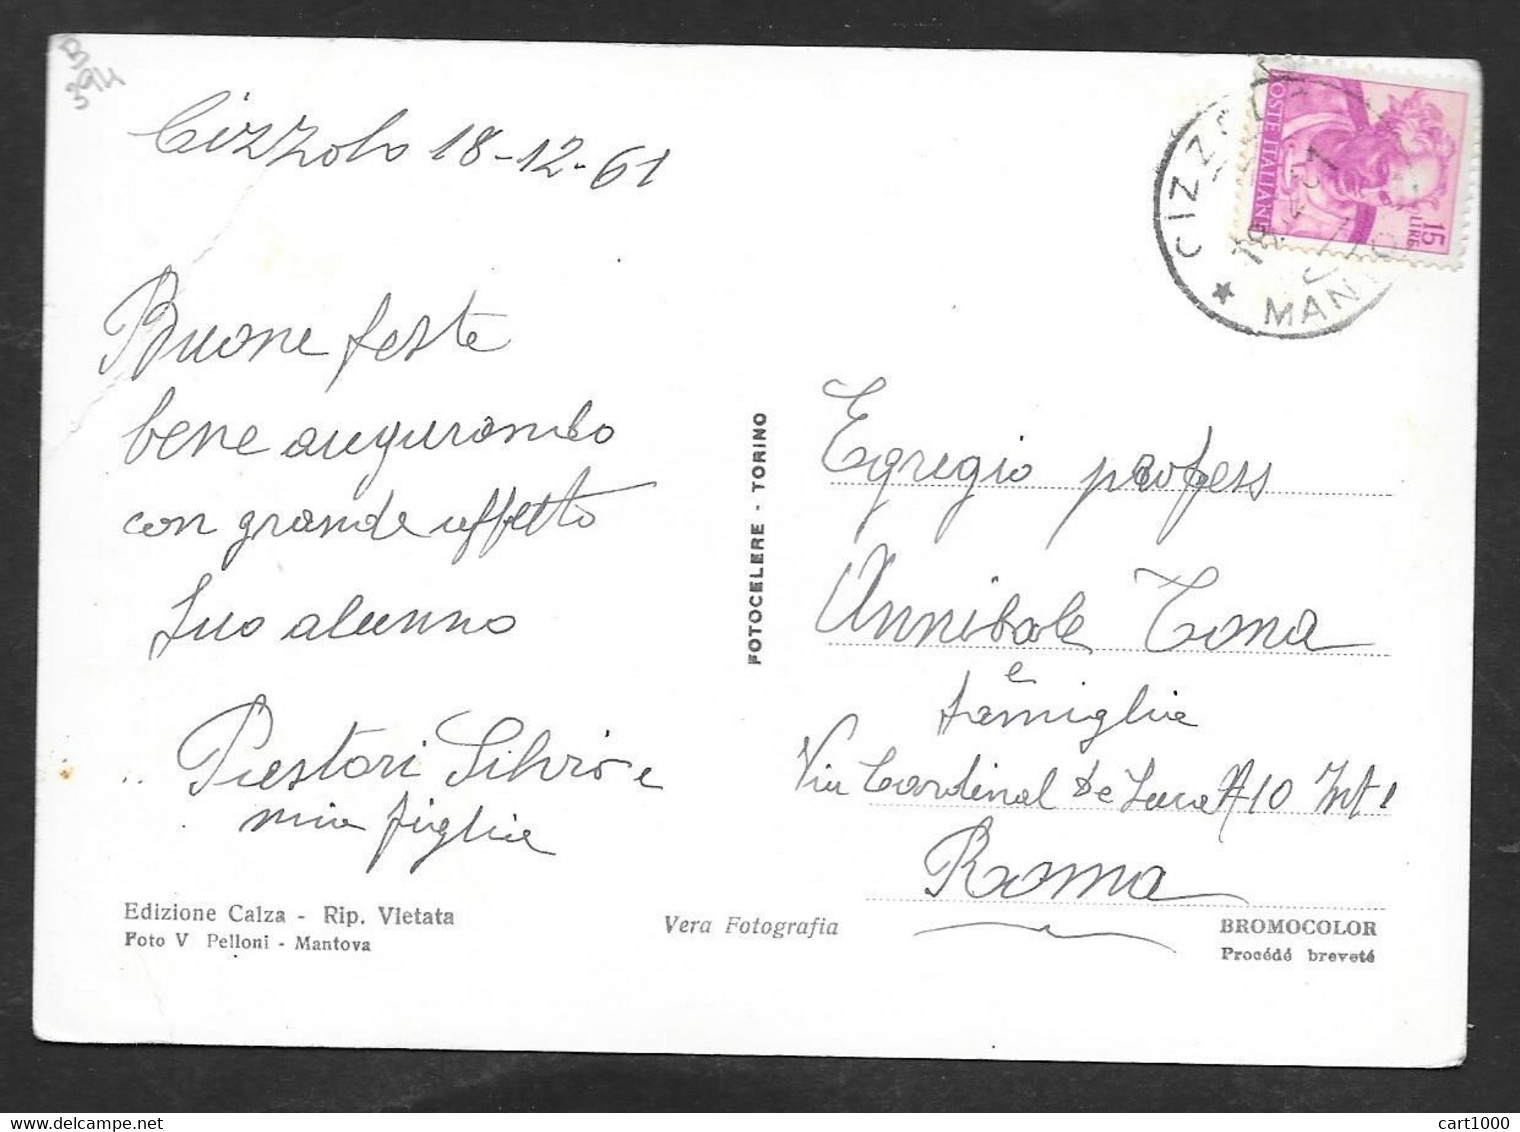 B
394
Cizzolo 18-12-61
Buone feste
bene augurando
con grande affetto
Suo alunno
Pestori Silvio e
mia figlia
Edizione Calza - Rip. Vietata
Foto V Pelloni - Mantova
FOTOCELERE - TORINO
Vera Fotografia
POSTE ITALIANE
15
LIRE
CIZZOLO
MANTO
Egregio profess
Annibale Tona
e
famiglia
Via Cardinal De Luca N 10 Int 1
Roma
BROMOCOLOR
Procédé breveté
cart1000